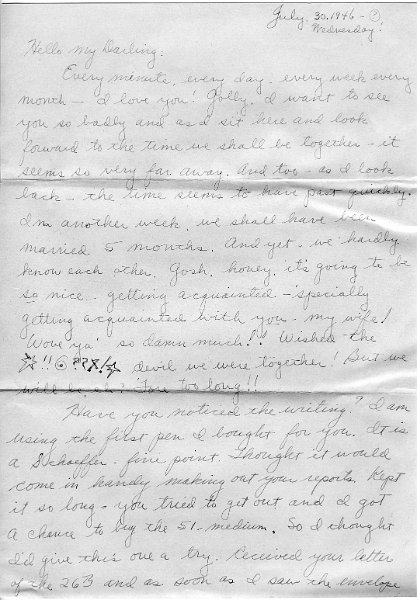 July. 30. 1946 - ?
Wednesday!
Hello my Darling.
Every minute, every day, every week every
month - I love you! Golly, I want to see
you so badly and as I sit here and look
forward to the time we shall be together - it
seems so very far away. And too - as I look
back - the time seems to have past quickly.
In another week, we shall have been
married 5 months. And yet - we hardly
know each other. Gosh, honey, it's going to be
so nice - getting acquainted - 'specially
getting acquainted with you - my wife!
Wove ya' so damn much!! Wished the
☆!!6??X!☆ devil we were together! But we
will be eh? Fore too long!!
Have you noticed the writing? I am
using the first pen I bought for you. It is
a Schaeffer - fine point. Thought it would
come in handy making out your reports. Kept
it so long - you tried to get out and I got
a chance to buy the 51 - medium. So I thought
I'd give this one a try. Received your letter
of the 26 and as soon as I saw the envelope